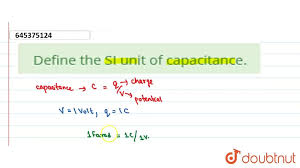 645375124
Define the SI unit of capacitance.
capacitance → C = q/V → charge
→ potential
V = 1 Volt, q = 1C
1 Farad = 1C/1V.
doubtnut